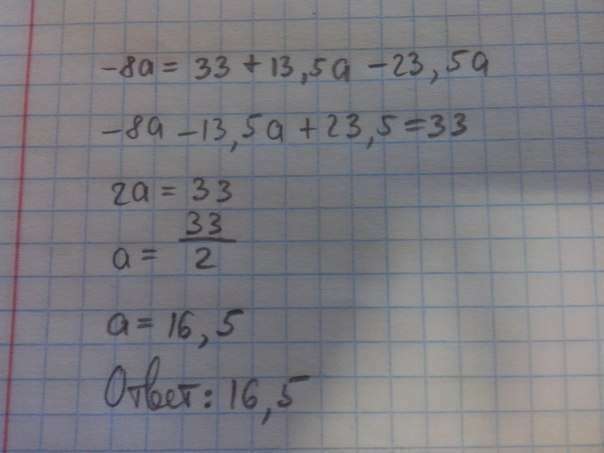 -8a = 33 + 13,5a - 23,5a
-8a - 13,5a + 23,5 = 33
2a = 33
a = 33/2
a = 16,5
Ответ: 16,5